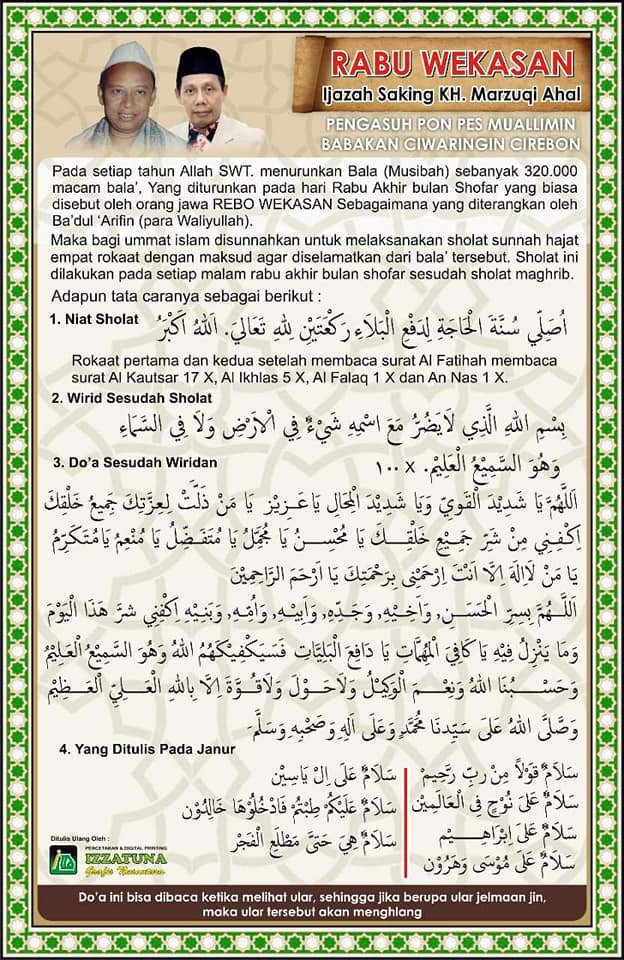 RABU WEKASAN
Ijazah Saking KH. Marzuqi Ahal
PENGASUH PON PES MUALLIMIN
BABAKAN CIWARINGIN CIREBON
Pada setiap tahun Allah SWT. menurunkan Bala (Musibah) sebanyak 320.000
macam bala', Yang diturunkan pada hari Rabu Akhir bulan Shofar yang biasa
disebut oleh orang jawa REBO WEKASAN Sebagaimana yang diterangkan oleh
Ba'dul 'Arifin (para Waliyullah).
Maka bagi ummat islam disunnahkan untuk melaksanakan sholat sunnah hajat
empat rokaat dengan maksud agar diselamatkan dari bala' tersebut. Sholat ini
dilakukan pada setiap malam rabu akhir bulan shofar sesudah sholat maghrib.
Adapun tata caranya sebagai berikut :
1. Niat Sholat
اُصَلِّي سُنَّةَ الْحَاجَةِ لِدَفْعِ الْبَلَاءِ رَكْعَتَيْنِ لِلهِ تَعَالَيْ. اَللهُ اَكْبَرُ
Rokaat pertama dan kedua setelah membaca surat Al Fatihah membaca
surat Al Kautsar 17 X, Al Ikhlas 5 X, Al Falaq 1 X dan An Nas 1 X.
2. Wirid Sesudah Sholat
بِسْمِ اللهِ الَّذِي لَايَضُرُّ مَعَ اسْمِهِ شَيْءٌ فِي الْاَرْضِ وَلَا فِي السَّمَاءِ
وَهُوَ السَّمِيْعُ الْعَلِيْمُ. x ١٠٠
3. Do'a Sesudah Wiridan
اَللّٰهُمَّ يَا شَدِيْدَ الْقَوِيِّ وَيَا شَدِيْدَ الْمِحَالِ يَا عَزِيْزُ يَا مَنْ ذَلَّتْ لِعِزَّتِكَ جَمِيْعُ خَلْقِكَ
اِكْفِنِي مِنْ شَرِّ جَمِيْعِ خَلْقِكَ يَا مُحْسِنُ يَا مُجَمِّلُ يَا مُتَفَضِّلُ يَا مُنْعِمُ يَا مُتَكَرِّمُ
يَا مَنْ لَااِلٰهَ اِلَّا اَنْتَ اِرْحَمْنِي بِرَحْمَتِكَ يَا اَرْحَمَ الرَّاحِمِيْنَ
اَللّٰهُمَّ بِسِرِّ الْحَسَنِ, وَاَخِيْهِ, وَجَدِّهِ, وَاَبِيْهِ, وَاُمِّهِ, وَبَنِيْهِ اِكْفِنِي شَرَّ هَذَا الْيَوْمَ
وَمَا يَنْزِلُ فِيْهِ يَا كَافِيَ الْمُهِمَّاتِ يَا دَافِعَ الْبَلِيَّاتِ فَسَيَكْفِيْكَهُمُ اللهُ وَهُوَ السَّمِيْعُ الْعَلِيْمُ
وَحَسْبُنَا اللهُ وَنِعْمَ الْوَكِيْلُ وَلَاحَوْلَ وَلَاقُوَّةَ اِلَّا بِاللهِ الْعَلِيِّ الْعَظِيْمِ
وَصَلَّى اللهُ عَلَى سَيِّدِنَا مُحَمَّدٍ وَعَلَى آلِهِ وَصَحْبِهِ وَسَلَّمَ.
4. Yang Ditulis Pada Janur
سَلَامٌ قَوْلًا مِنْ رَبٍّ رَحِيْمٍ
سَلَامٌ عَلَى نُوْحٍ فِى الْعَالَمِيْنَ
سَلَامٌ عَلَى اِبْرَاهِيْمَ
سَلَامٌ عَلَى مُوْسَى وَهٰرُوْنَ
سَلَامٌ عَلَى اِلْ يَاسِيْنَ
سَلَامٌ عَلَيْكُمْ طِبْتُمْ فَادْخُلُوْهَا خَالِدُوْنَ
سَلَامٌ هِيَ حَتَّى مَطْلَعِ الْفَجْرِ
Ditulis Ulang Oleh :
PERCETAKAN & DIGITAL PRINTING
IZZATUNA
Grafis Nusantara
Do'a ini bisa dibaca ketika melihat ular, sehingga jika berupa ular jelmaan jin,
maka ular tersebut akan menghlang